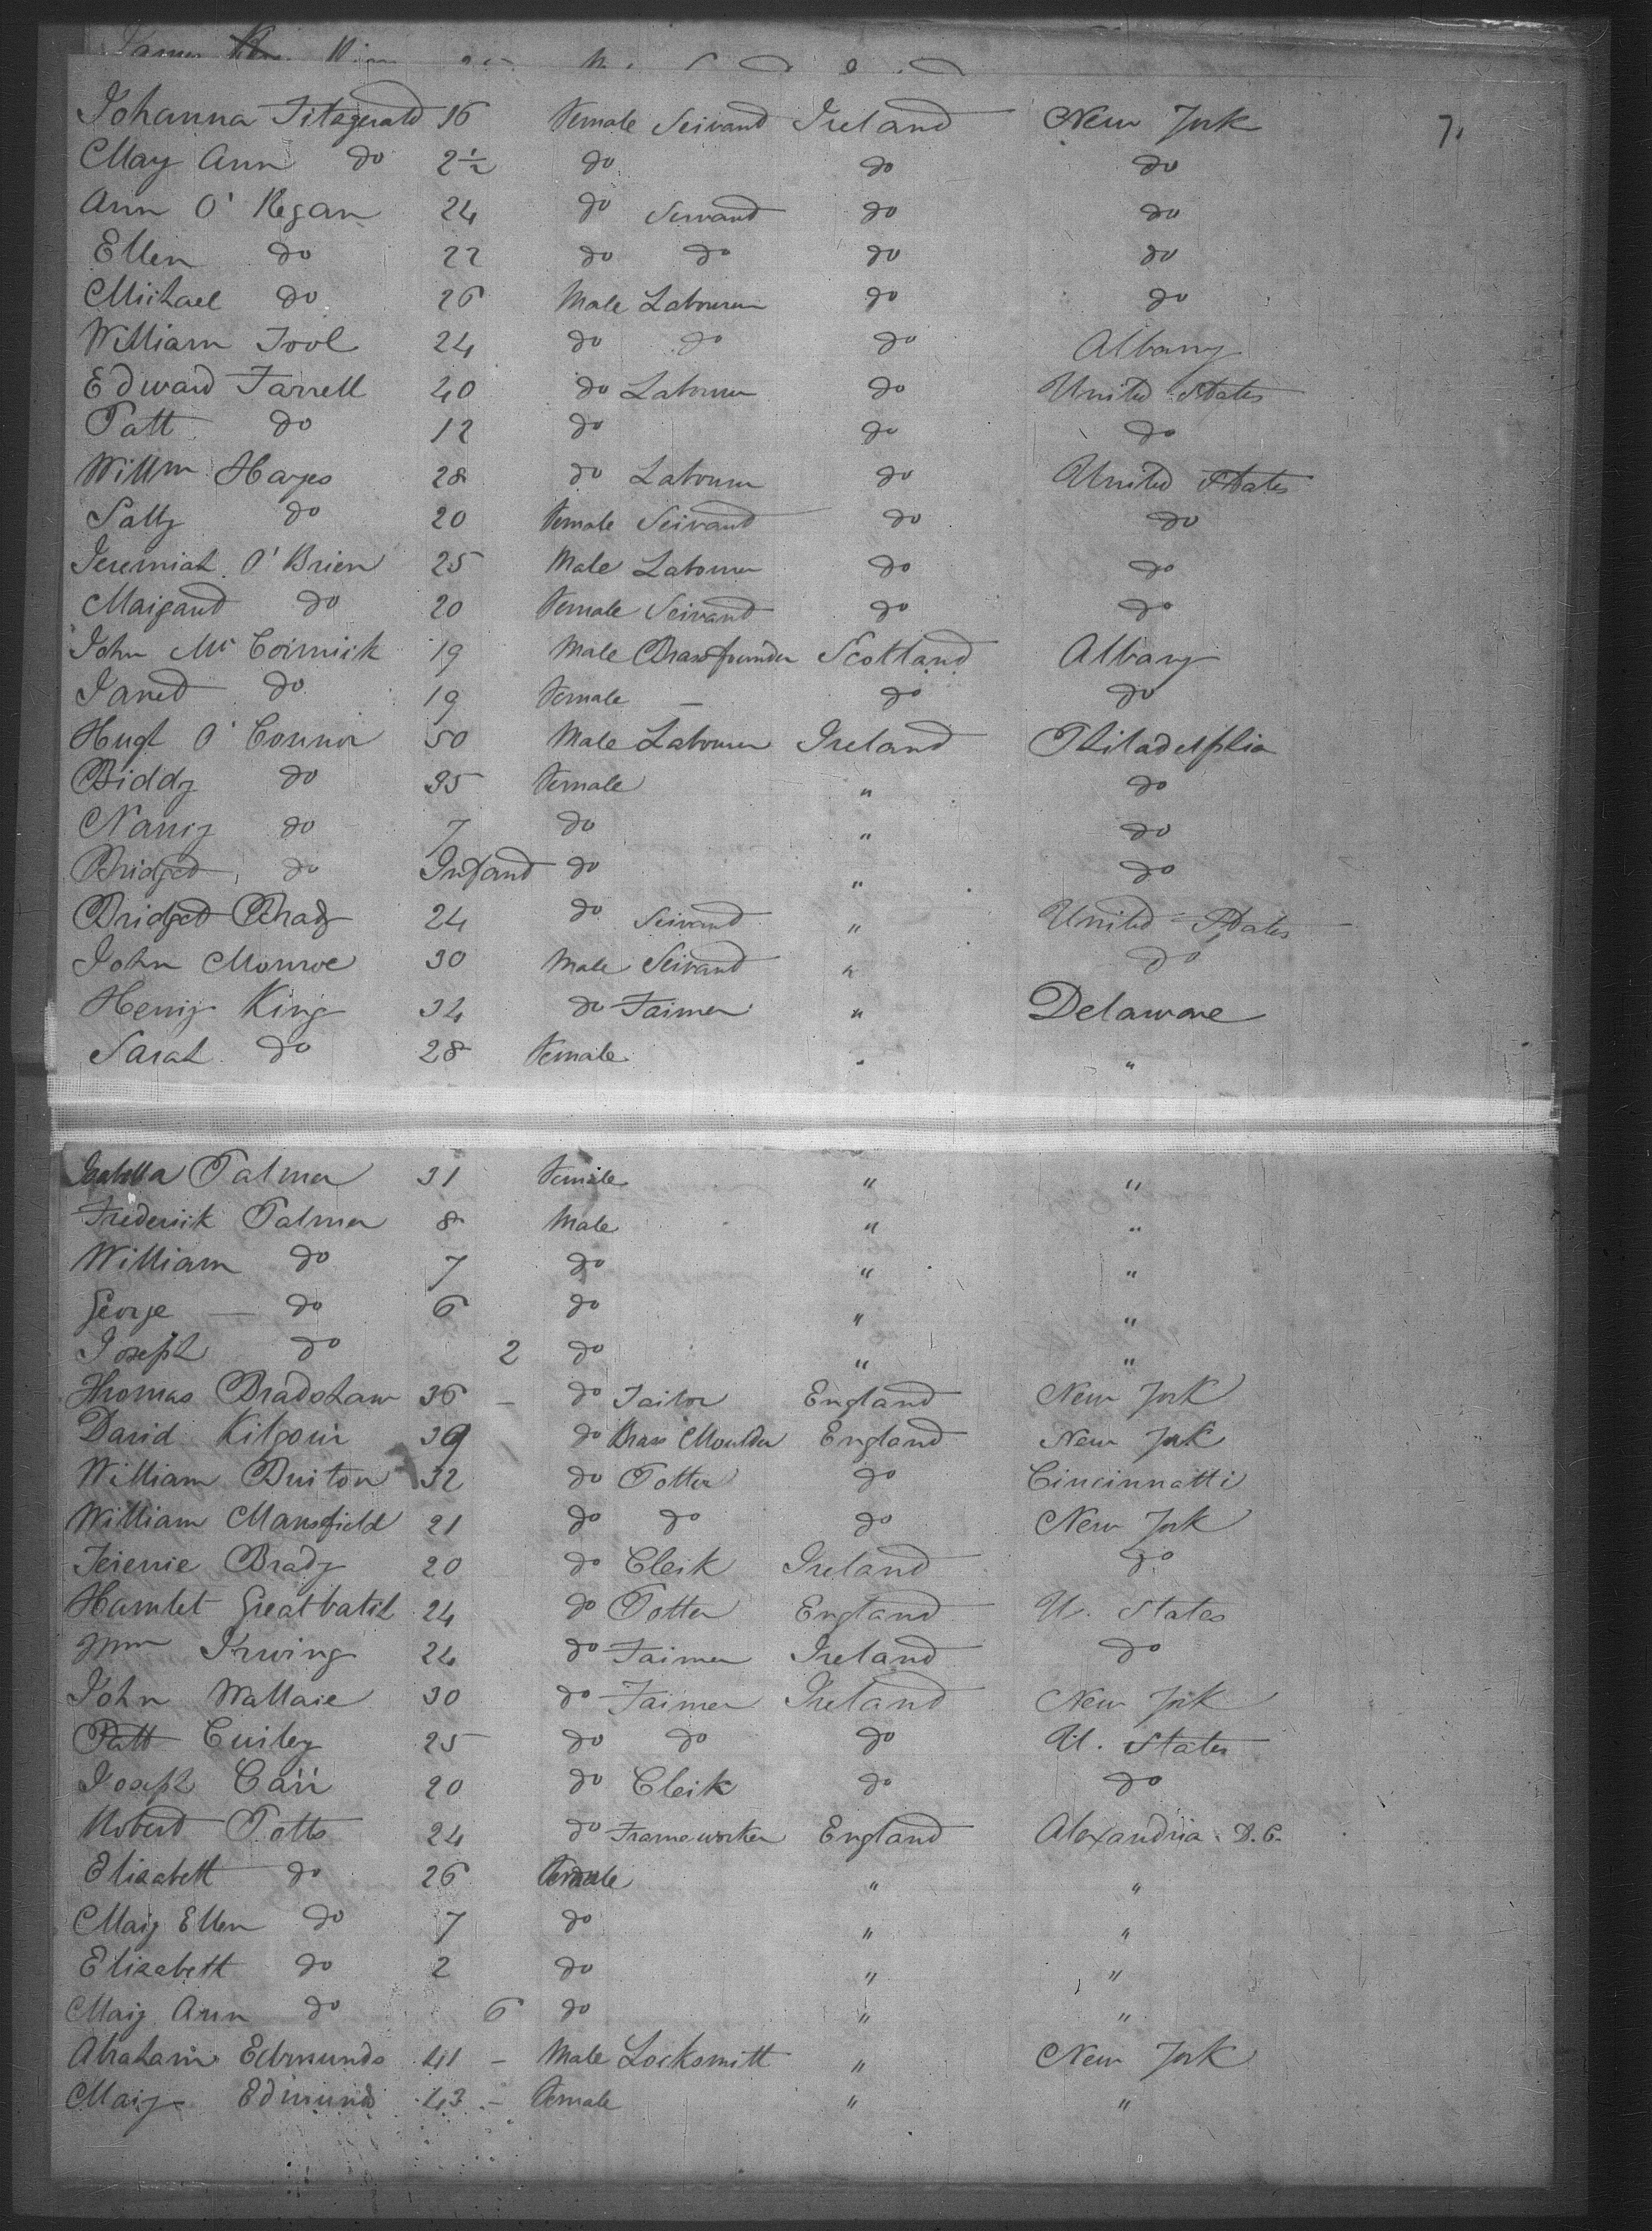 James
Johanna Fitzgerald 16 Female Servand Ireland New York 7.
Mary Ann do 2½ do do do
Ann O' Regan 24 do Servand do do
Ellen do 22 do do do do
Michael do 26 Male Labourer do do
William Tool 24 do do do Albany
Edward Farrell 40 do Labourer do United States
Patt do 12 do do do
Willm Hayes 28 do Labourer do United States
Sally do 20 Female Servand do do
Jeremiah O' Brien 25 Male Labourer do do
Margand do 20 Female Servand do do
John Mc Cormick 19 Male Brassfounder Scotland Albany
Janed do 19 Female — do do
Hugh O' Connor 50 Male Labourer Ireland Philadelphia
Biddy do 35 Female " do
Nancy do 7 do " do
Bridged do Infand do " do
Bridged Brady 24 do Servand " United States
John Monroe 30 Male Servand " do
Henry King 34 do Farmer " Delaware
Sarah do 28 Female " "
Isabella Palmer 31 Female " "
Frederick Palmer 8 Male " "
William do 7 do " "
George — do 6 do " "
Joseph do 2 do " "
Thomas Bradshaw 36 – do Tailor England New York
David Kilgour 39 do Brass Moulder England New York
William Burton 32 do Potter do Cincinnatti
William Mansfield 21 do do do New York
Terence Brady 20 do Clerk Ireland do
Hamlet Greatbatch 24 do Potter England U. States
Wm Irwing 24 do Farmer Ireland do
John Wallace 30 do Farmer Ireland New York
Patt Curley 25 do do do U. States
Joseph Carr 20 do Clerk do do
Roberd Potts 24 do Frameworker England Alexandria D.C.
Elizabeth do 26 Female " "
Mary Ellen do 7 do " "
Elizabeth do 2 do " "
Mary Ann do 6 do " "
Abraham Edmunds 41 – Male Locksmith " New York
Mary Edmunds 43 – Female " "